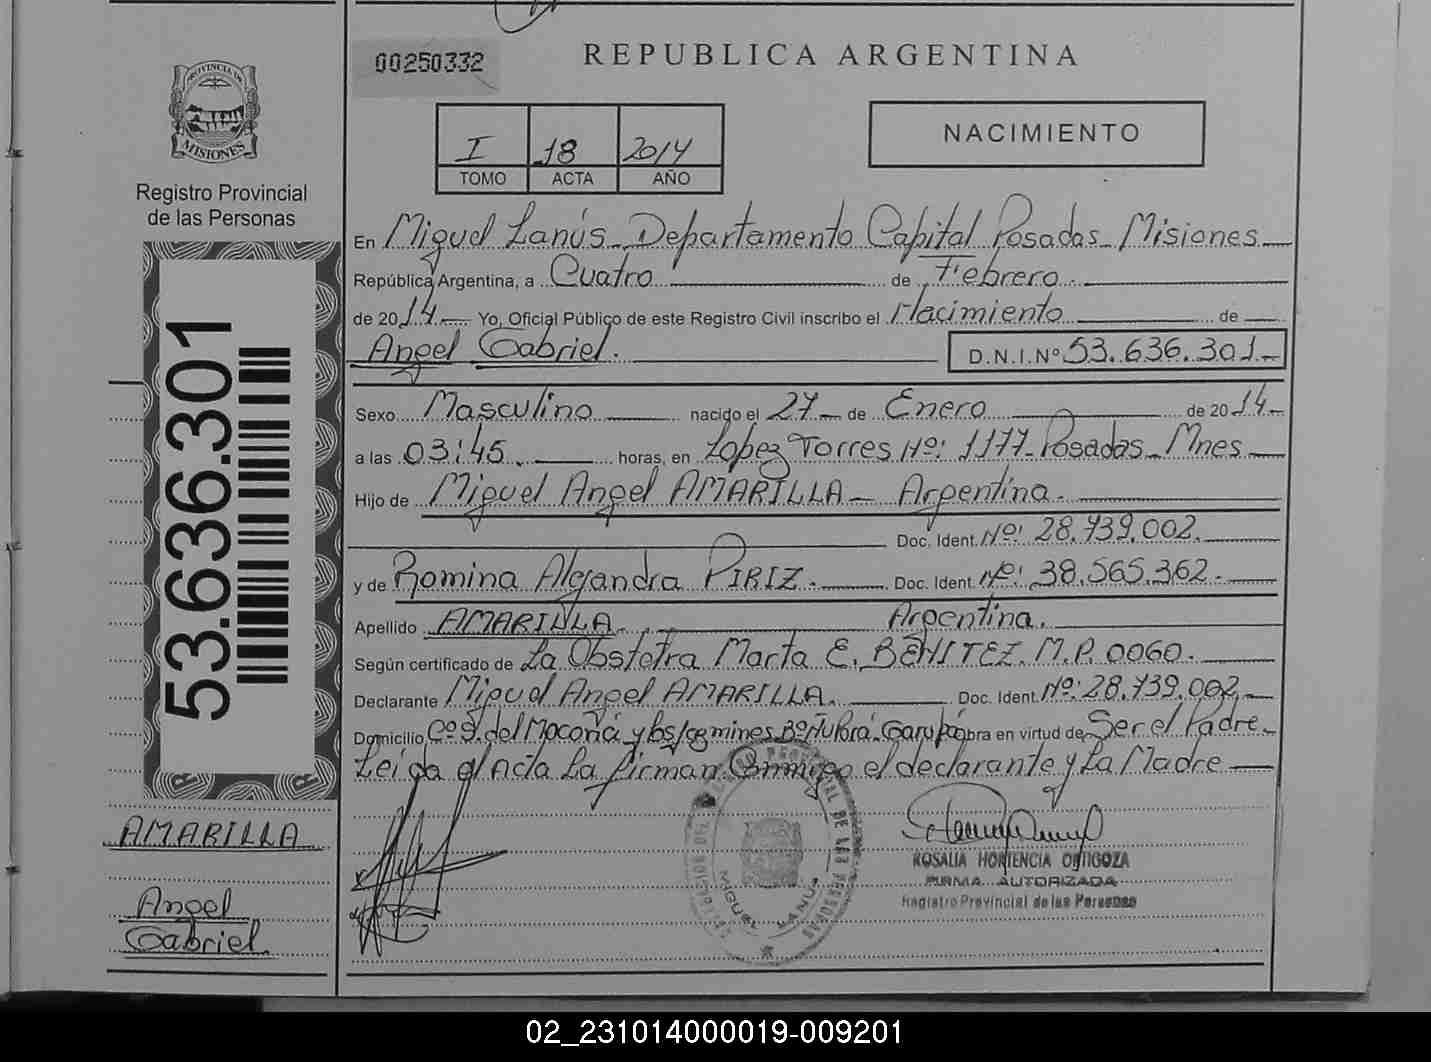 00250332
REPUBLICA ARGENTINA
PROVINCIA DE
MISIONES
I 18 2014
TOMO ACTA AÑO
NACIMIENTO
Registro Provincial
de las Personas
53.636.301
En Miguel Lanús Departamento Capital Posadas Misiones
República Argentina, a Cuatro de Febrero
de 2014 Yo, Oficial Público de este Registro Civil inscribo el Nacimiento de
Angel Gabriel. D.N.I.Nº 53.636.301
Sexo Masculino nacido el 27 de Enero de 2014
a las 03:45. horas, en Lopez Torres Nº: 1177 Posadas Mnes
Hijo de Miguel Angel AMARILLA Argentina.
Doc. Ident. Nº: 28.739.002.
y de Romina Alejandra PIRIZ. Doc. Ident. Nº: 38.565.362.
Apellido AMARILLA. Argentina.
Según certificado de La Obstetra Marta E. BENITEZ. M.P. 0060.
Declarante Miguel Angel AMARILLA. Doc. Ident. Nº: 28.739.002
Domicilio del Moconá y Jazmines Bº Ñu Porá. Garupá obra en virtud de Ser el Padre
Leída el Acta La firman Conmigo el declarante y La Madre
AMARILLA
Angel
Gabriel
MIGUEL LANUS
ROSALIA HORTENCIA ORTIGOZA
FIRMA AUTORIZADA
Registro Provincial de las Personas
02_231014000019-009201